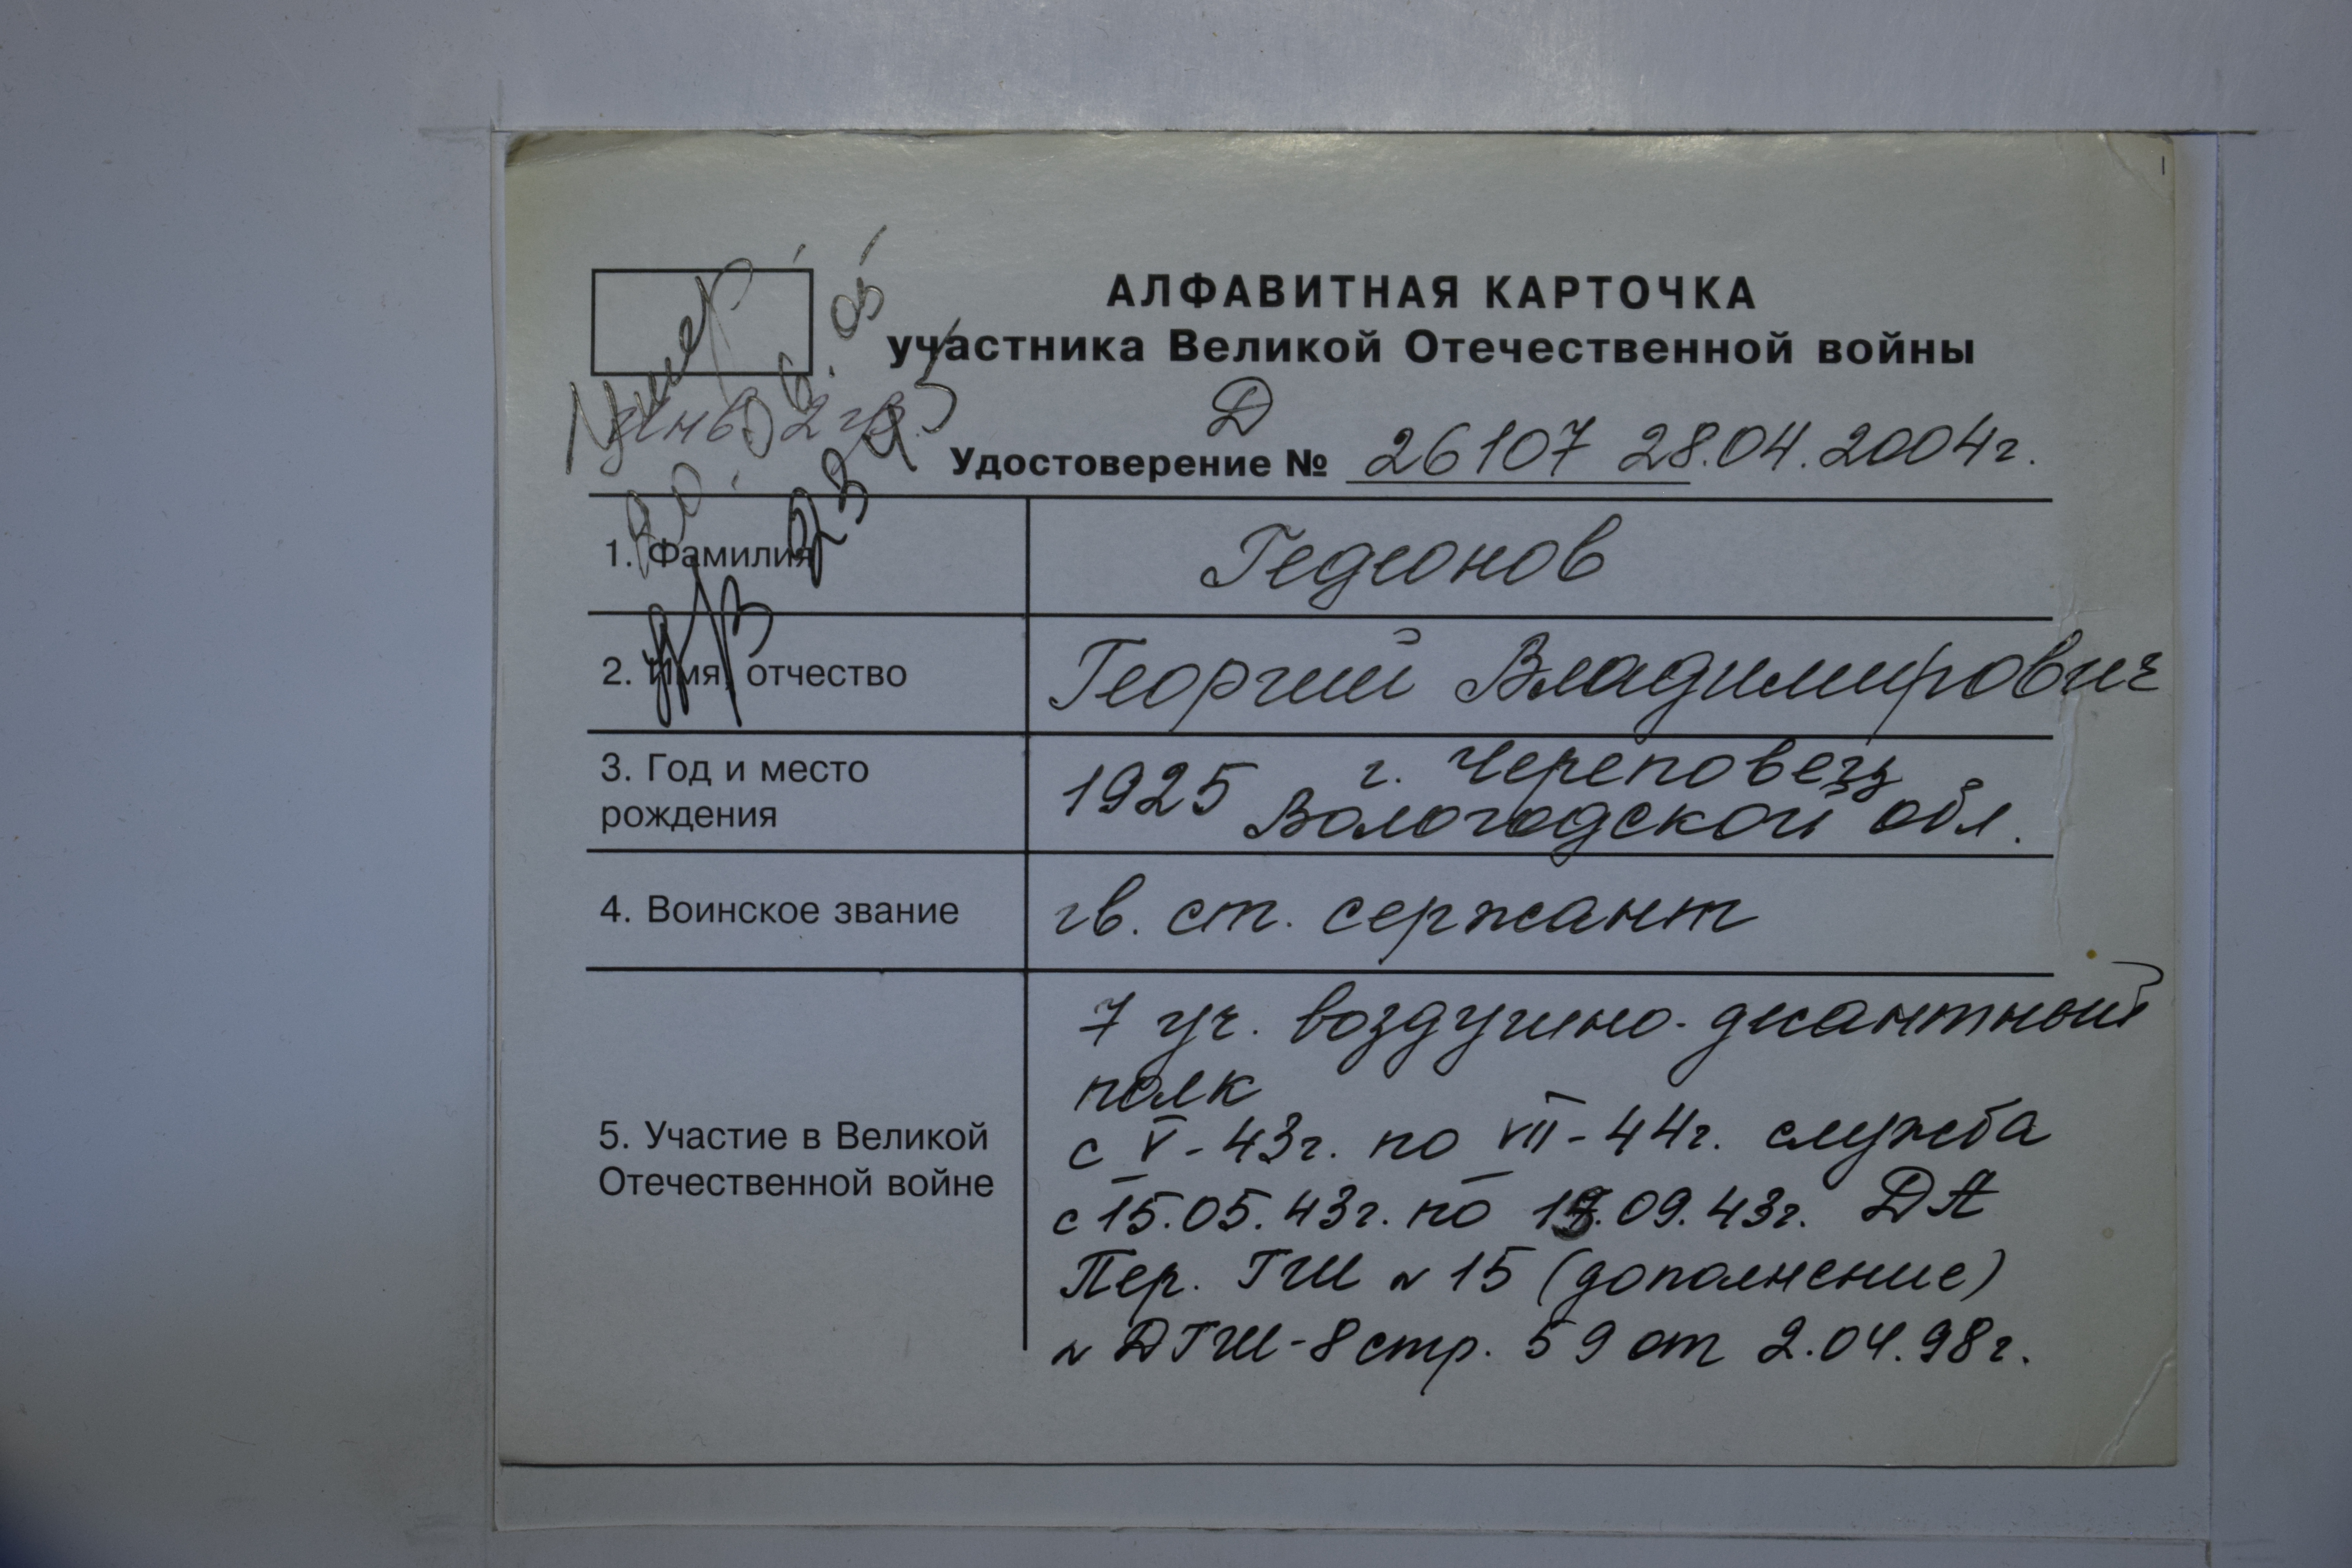 АЛФАВИТНАЯ КАРТОЧКА
участника Великой Отечественной войны
Умер
инв. 2 гр.
Д
Удостоверение № 26107 28.04.2004г.
1. Фамилия
Гедеонов
2. Имя, отчество
Георгий Владимирович
3. Год и место
рождения
1925 г. Череповец
Вологодской обл.
4. Воинское звание
гв. ст. сержант
5. Участие в Великой
Отечественной войне
7 уч. воздушно-десантный
полк
с V-43г. по VII-44г. служба
с 15.05.43г. по 09.43г. ДА
Пер. ГШ № 15 (дополнение)
№ ДГШ-8 стр. 59 от 2.04.98г.